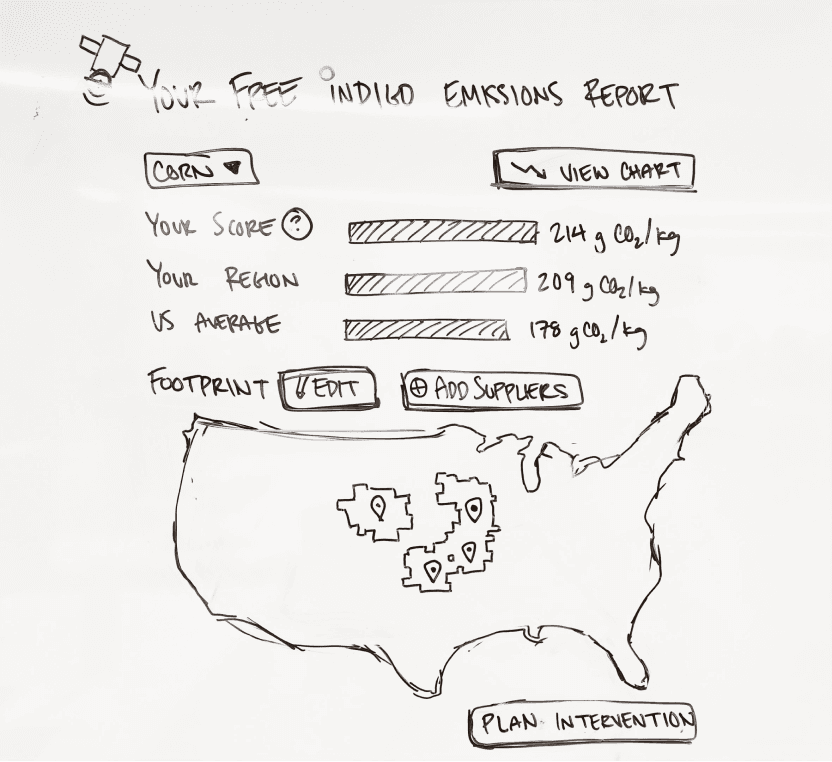 YOUR FREE INDIGO EMISSIONS REPORT
CORN VIEW CHART
YOUR SCORE ? 214 g CO₂/kg
YOUR REGION 209 g CO₂/kg
US AVERAGE 178 g CO₂/kg
FOOTPRINT EDIT ADD SUPPLIERS
PLAN INTERVENTION